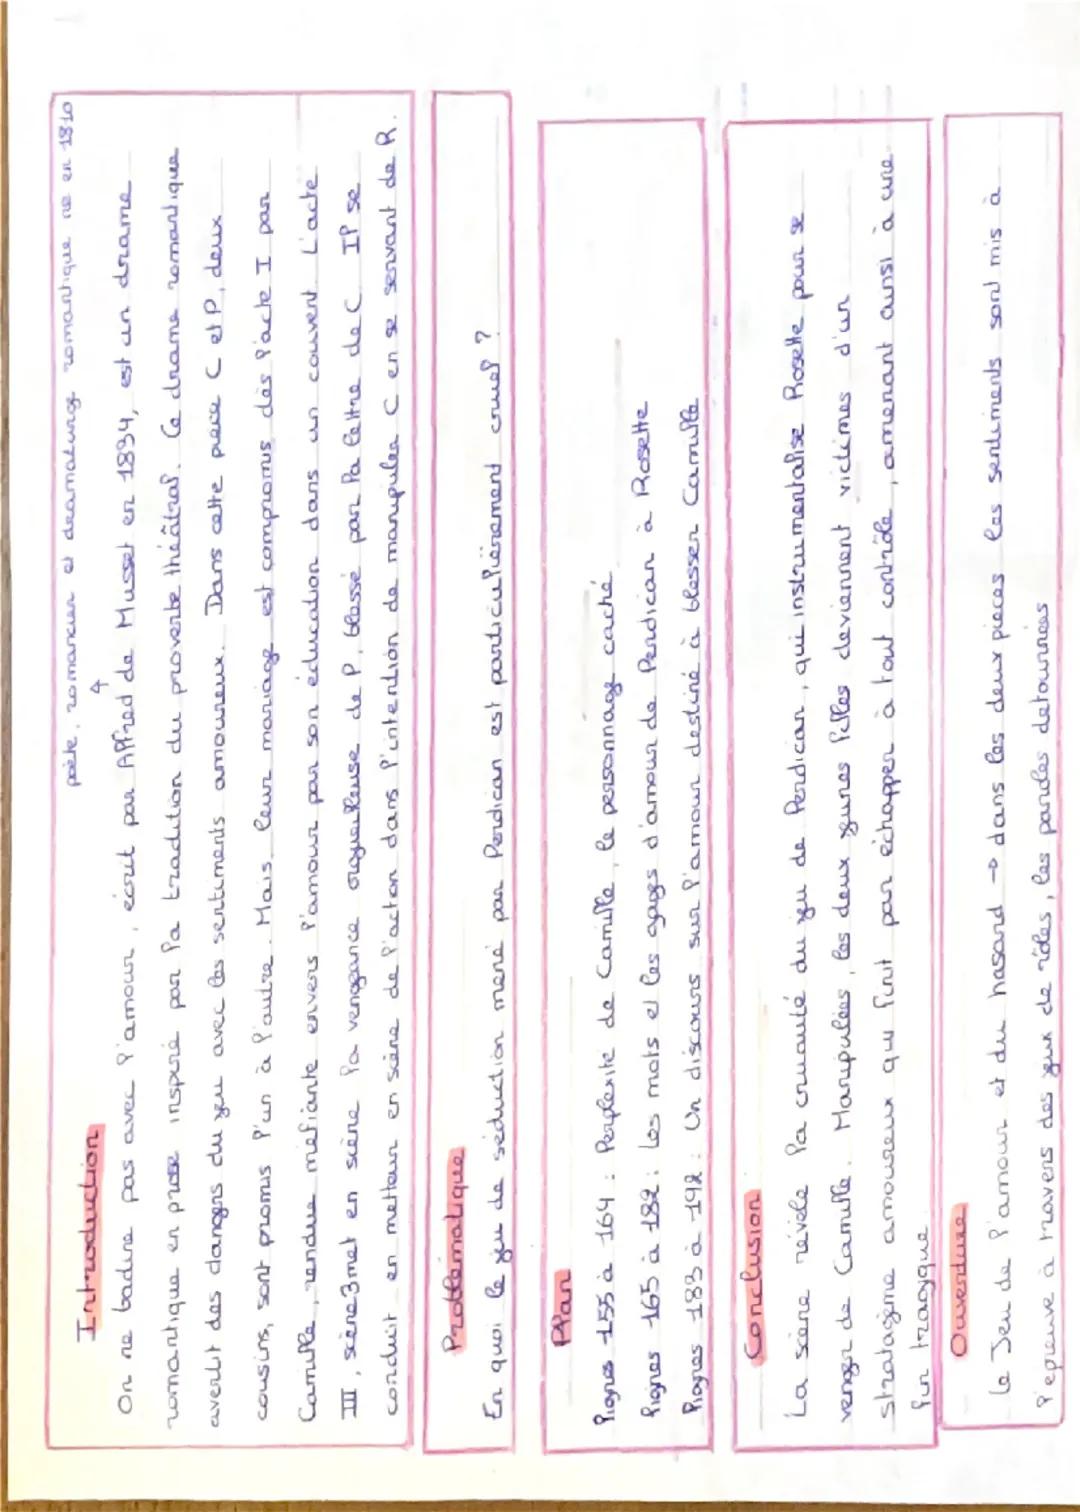 poète, romancier et dramaturge romantique né en 1810
Introduction
On ne badine pas avec l'amour, écrit par Alfred de Musset en 1834, est un drame
romantique en prose inspiré par la tradition du proverbe théâtral. Ce drame romantique
avertit des dangers du jeu avec les sentiments amoureux. Dans cette pièce C et P, deux
cousins, sont promus l'un à l'autre. Mais, leur mariage est compromis dès l'acte I par
Camille, rendue méfiante envers l'amour par son éducation dans un couvent. L'acte
III, scène 3 met en scène la vengeance orgueilleuse de P, blessé par la lettre de C. IP se
conduit en metteur en scène de l'acton dans l'intention de manipuler C en se servant de R.
Problématique
En quoi le jeu de séduction mené par Perdican est particulièrement cruel ?
Plan
lignes 155 à 164 : Perplexité de Camille, le personnage caché
lignes 165 à 182 : Les mots et les gages d'amour de Perdican à Rosette
lignes 183 à 192 : Un discours sur l'amour destiné à blesser Camille
Conclusion
La scène révèle la cruauté du jeu de Perdican, qui instrumentalise Rosette pour se
venger de Camille. Manipulées, les deux jeunes filles deviennent victimes d'un
stratagème amoureux qui finit par échapper à tout contrôle, amenant ainsi à une
fin tragique
Ouverture
Le Jeu de l'amour et du hasard → dans les deux pièces les sentiments sont mis à
l'épreuve à travers des jeux de rôles, les paroles détournées